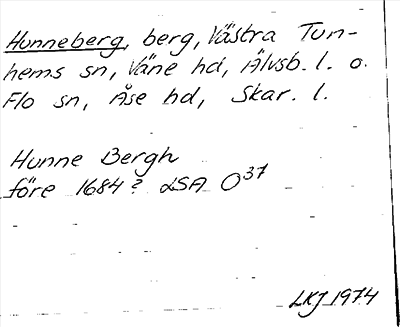 Hunneberg, berg, Västra Tun-
hems sn, Väne hd, Älvsb. l. o.
Flo sn, Åse hd, Skar. l.
Hunne Bergh
före 1684? LSA O37
LKJ 1974